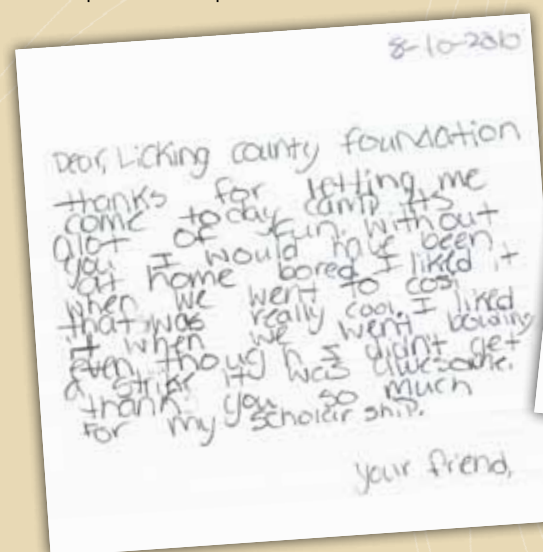 8-10-2010
Dear, Licking county foundation
thanks for letting me
come to day camp its
alot of fun. without
you I would have been
at home bored I liked it
when we went to cosi
that was really cool. I liked
it when we went bowling
even though I didn't get
a strike it was awesome.
thank you so much
for my scholar ship.
your friend,